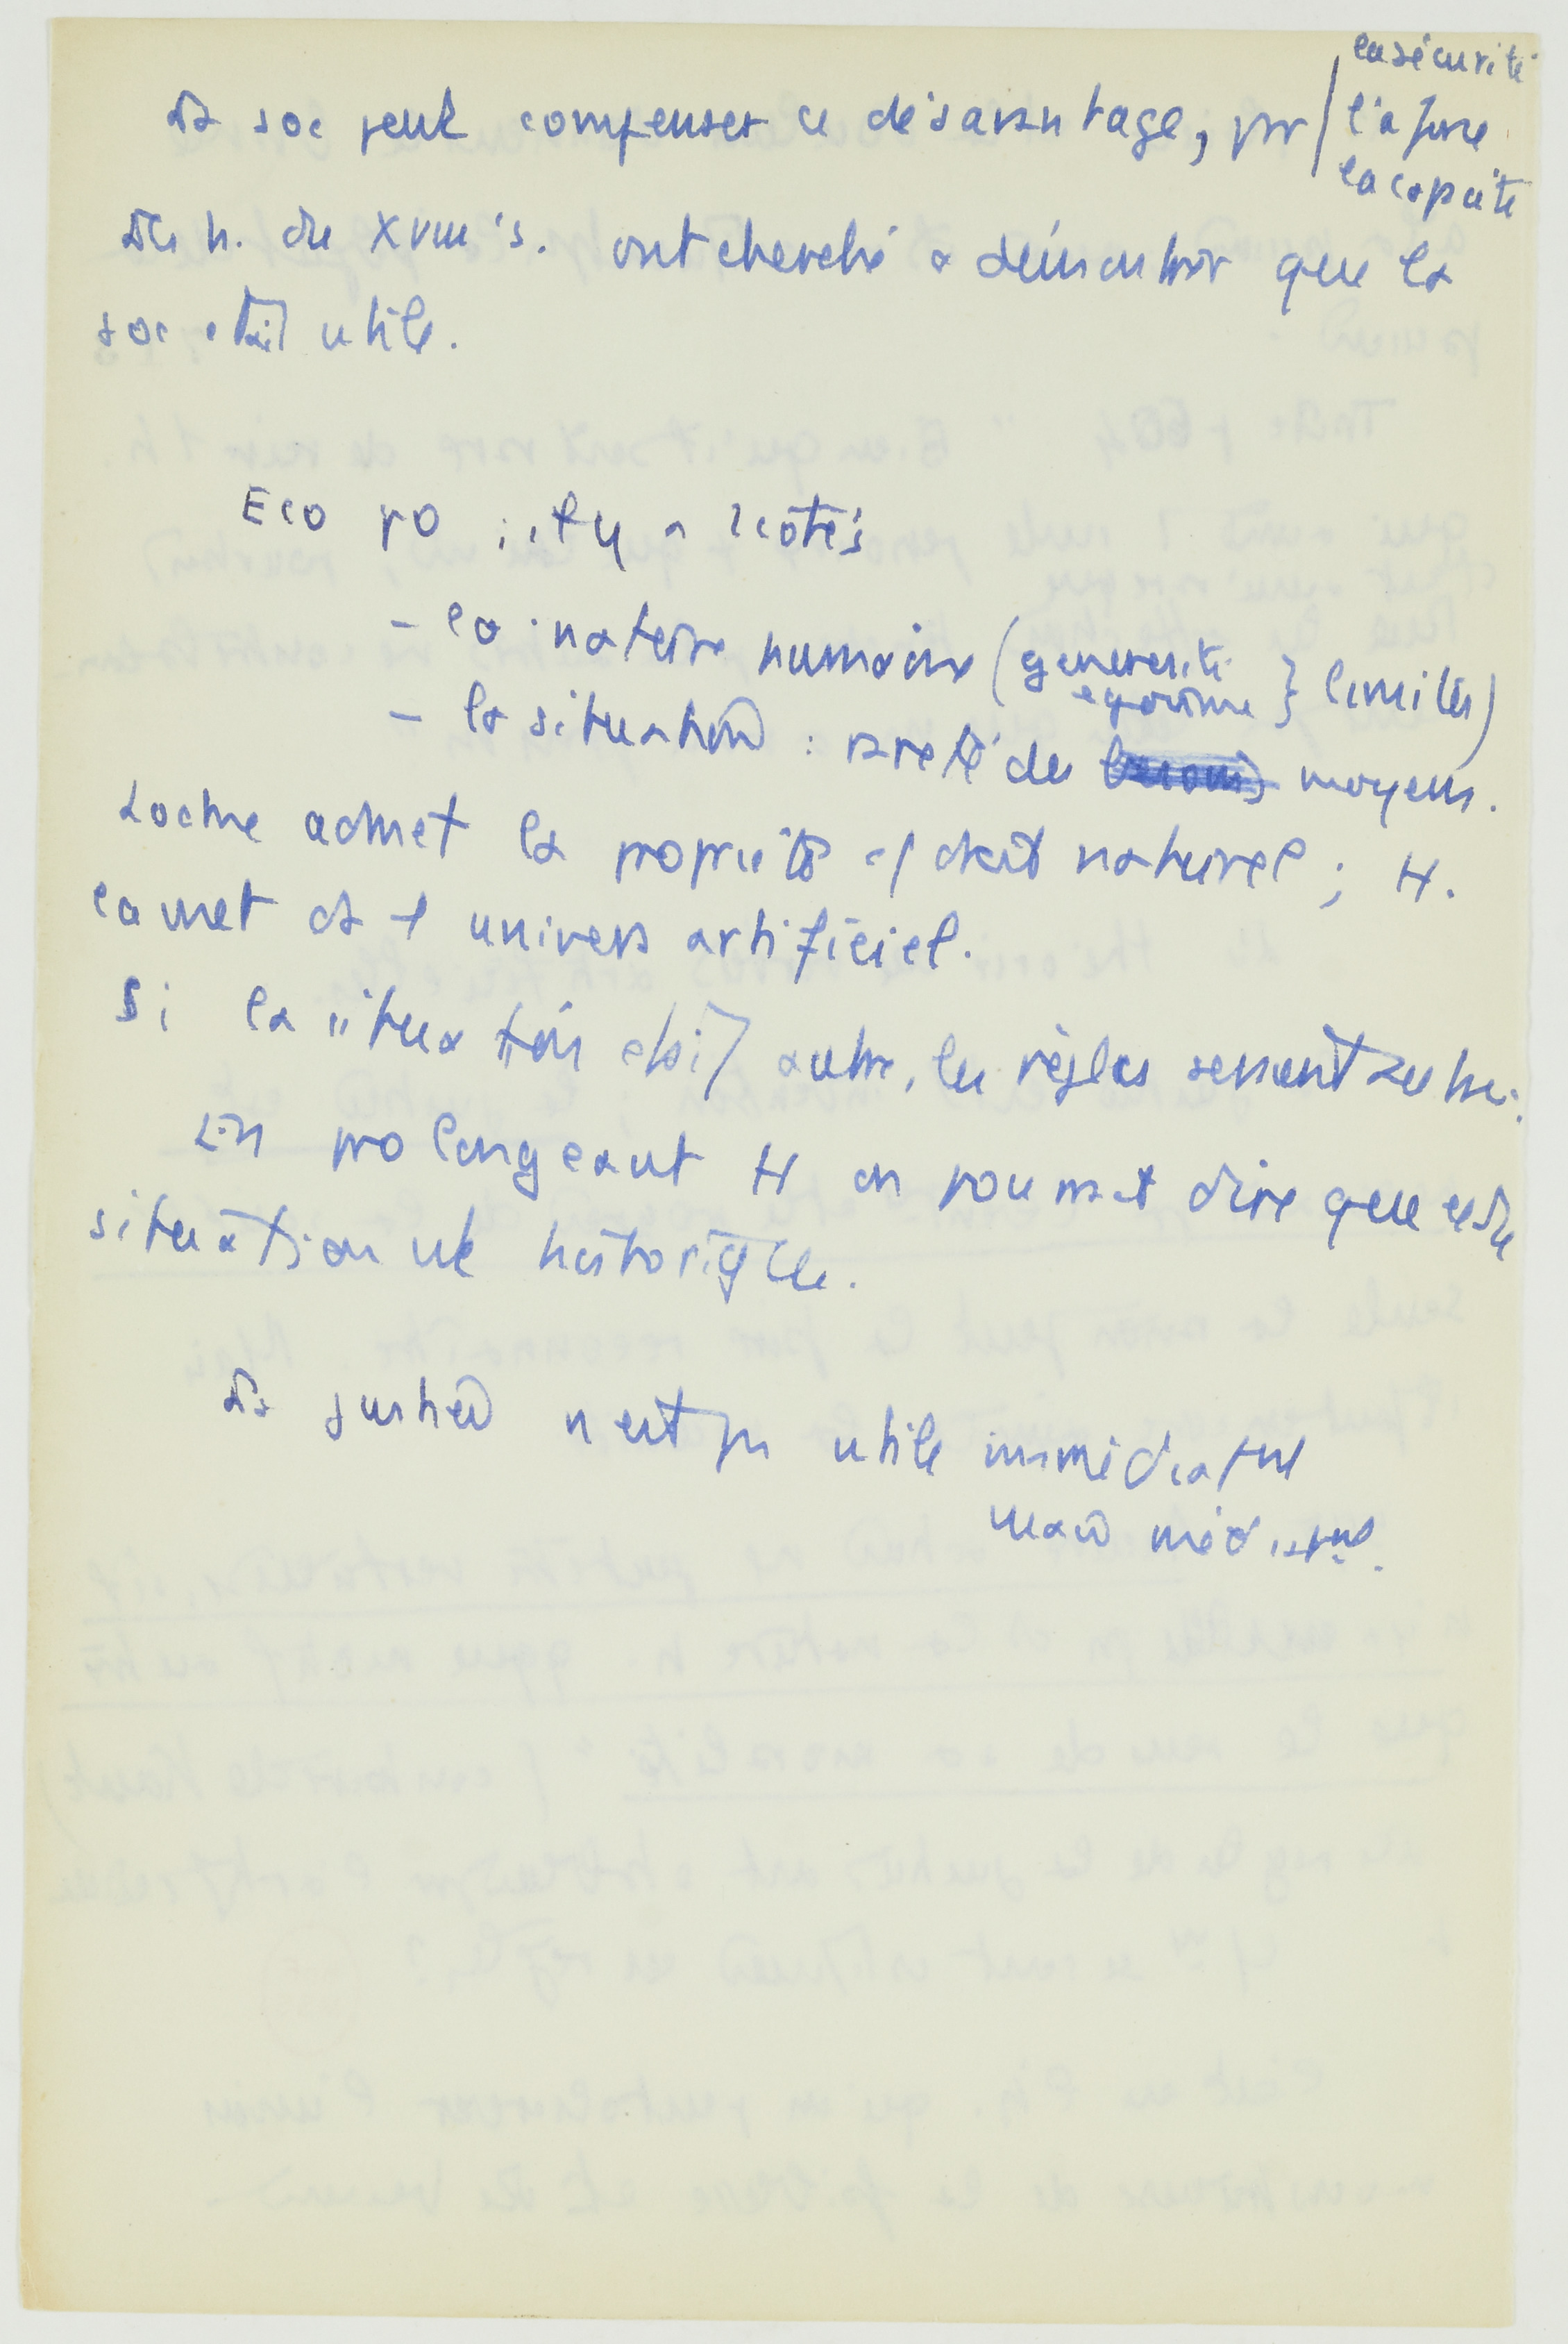 la sécurité
La soc peut compenser ce désavantage, par l'a force
la capacité
Les h. du XVIII's. ont cherché à démontrer que la
soc était utile.
Eco po : il y a 2 côtés
- la nature humaine (générosité
égoïsme } limités)
- la situation : rareté des moyens.
Locke admet la propriété c/ droit naturel ; H.
la met ds 1 univers artificiel.
Si la situation était autre, les règles seraient autres.
En prolongeant H on pourrait dire que cette
situation est historique.
La justice n'est pas utile immédiatmt
mais médiatmt.